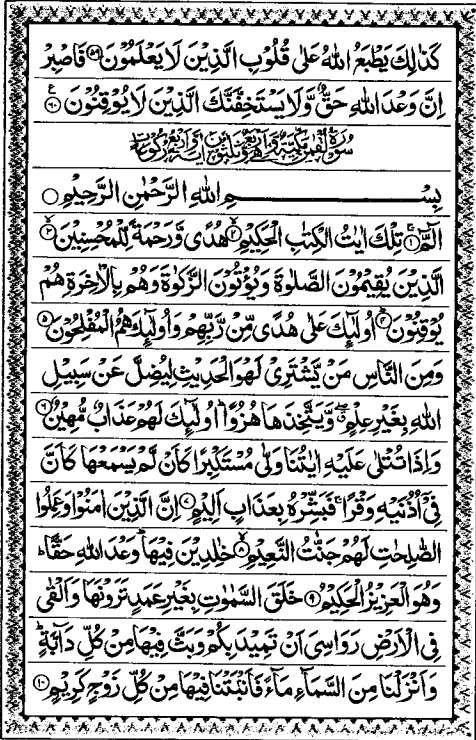 كَذٰلِكَ يَطْبَعُ اللّٰهُ عَلٰى قُلُوْبِ الَّذِيْنَ لَا يَعْلَمُوْنَ ۝۵۹ فَاصْبِرْ
اِنَّ وَعْدَ اللّٰهِ حَقٌّ وَّلَا يَسْتَخِفَّنَّكَ الَّذِيْنَ لَا يُوْقِنُوْنَ ۝۶۰
بِسْمِ اللّٰهِ الرَّحْمٰنِ الرَّحِيْمِ ۝
الٓمّٓ ۝۱ تِلْكَ اٰيٰتُ الْكِتٰبِ الْحَكِيْمِ ۝۲ هُدًى وَّرَحْمَةً لِّلْمُحْسِنِيْنَ ۝۳
الَّذِيْنَ يُقِيْمُوْنَ الصَّلٰوةَ وَيُؤْتُوْنَ الزَّكٰوةَ وَهُمْ بِالْاٰخِرَةِ هُمْ
يُوْقِنُوْنَ ۝۴ اُولٰٓئِكَ عَلٰى هُدًى مِّنْ رَّبِّهِمْ وَاُولٰٓئِكَ هُمُ الْمُفْلِحُوْنَ ۝۵
وَمِنَ النَّاسِ مَنْ يَّشْتَرِيْ لَهْوَ الْحَدِيْثِ لِيُضِلَّ عَنْ سَبِيْلِ
اللّٰهِ بِغَيْرِ عِلْمٍ ۖ وَّيَتَّخِذَهَا هُزُوًا ؕ اُولٰٓئِكَ لَهُمْ عَذَابٌ مُّهِيْنٌ ۝۶
وَاِذَا تُتْلٰى عَلَيْهِ اٰيٰتُنَا وَلّٰى مُسْتَكْبِرًا كَاَنْ لَّمْ يَسْمَعْهَا كَاَنَّ
فِيْٓ اُذُنَيْهِ وَقْرًا ۚ فَبَشِّرْهُ بِعَذَابٍ اَلِيْمٍ ۝۷ اِنَّ الَّذِيْنَ اٰمَنُوْا وَعَمِلُوا
الصّٰلِحٰتِ لَهُمْ جَنّٰتُ النَّعِيْمِ ۝۸ خٰلِدِيْنَ فِيْهَا ؕ وَعْدَ اللّٰهِ حَقًّا ؕ
وَهُوَ الْعَزِيْزُ الْحَكِيْمُ ۝۹ خَلَقَ السَّمٰوٰتِ بِغَيْرِ عَمَدٍ تَرَوْنَهَا وَاَلْقٰى
فِي الْاَرْضِ رَوَاسِيَ اَنْ تَمِيْدَ بِكُمْ وَبَثَّ فِيْهَا مِنْ كُلِّ دَآبَّةٍ ؕ
وَاَنْزَلْنَا مِنَ السَّمَآءِ مَآءً فَاَنْۢبَتْنَا فِيْهَا مِنْ كُلِّ زَوْجٍ كَرِيْمٍ ۝۱۰